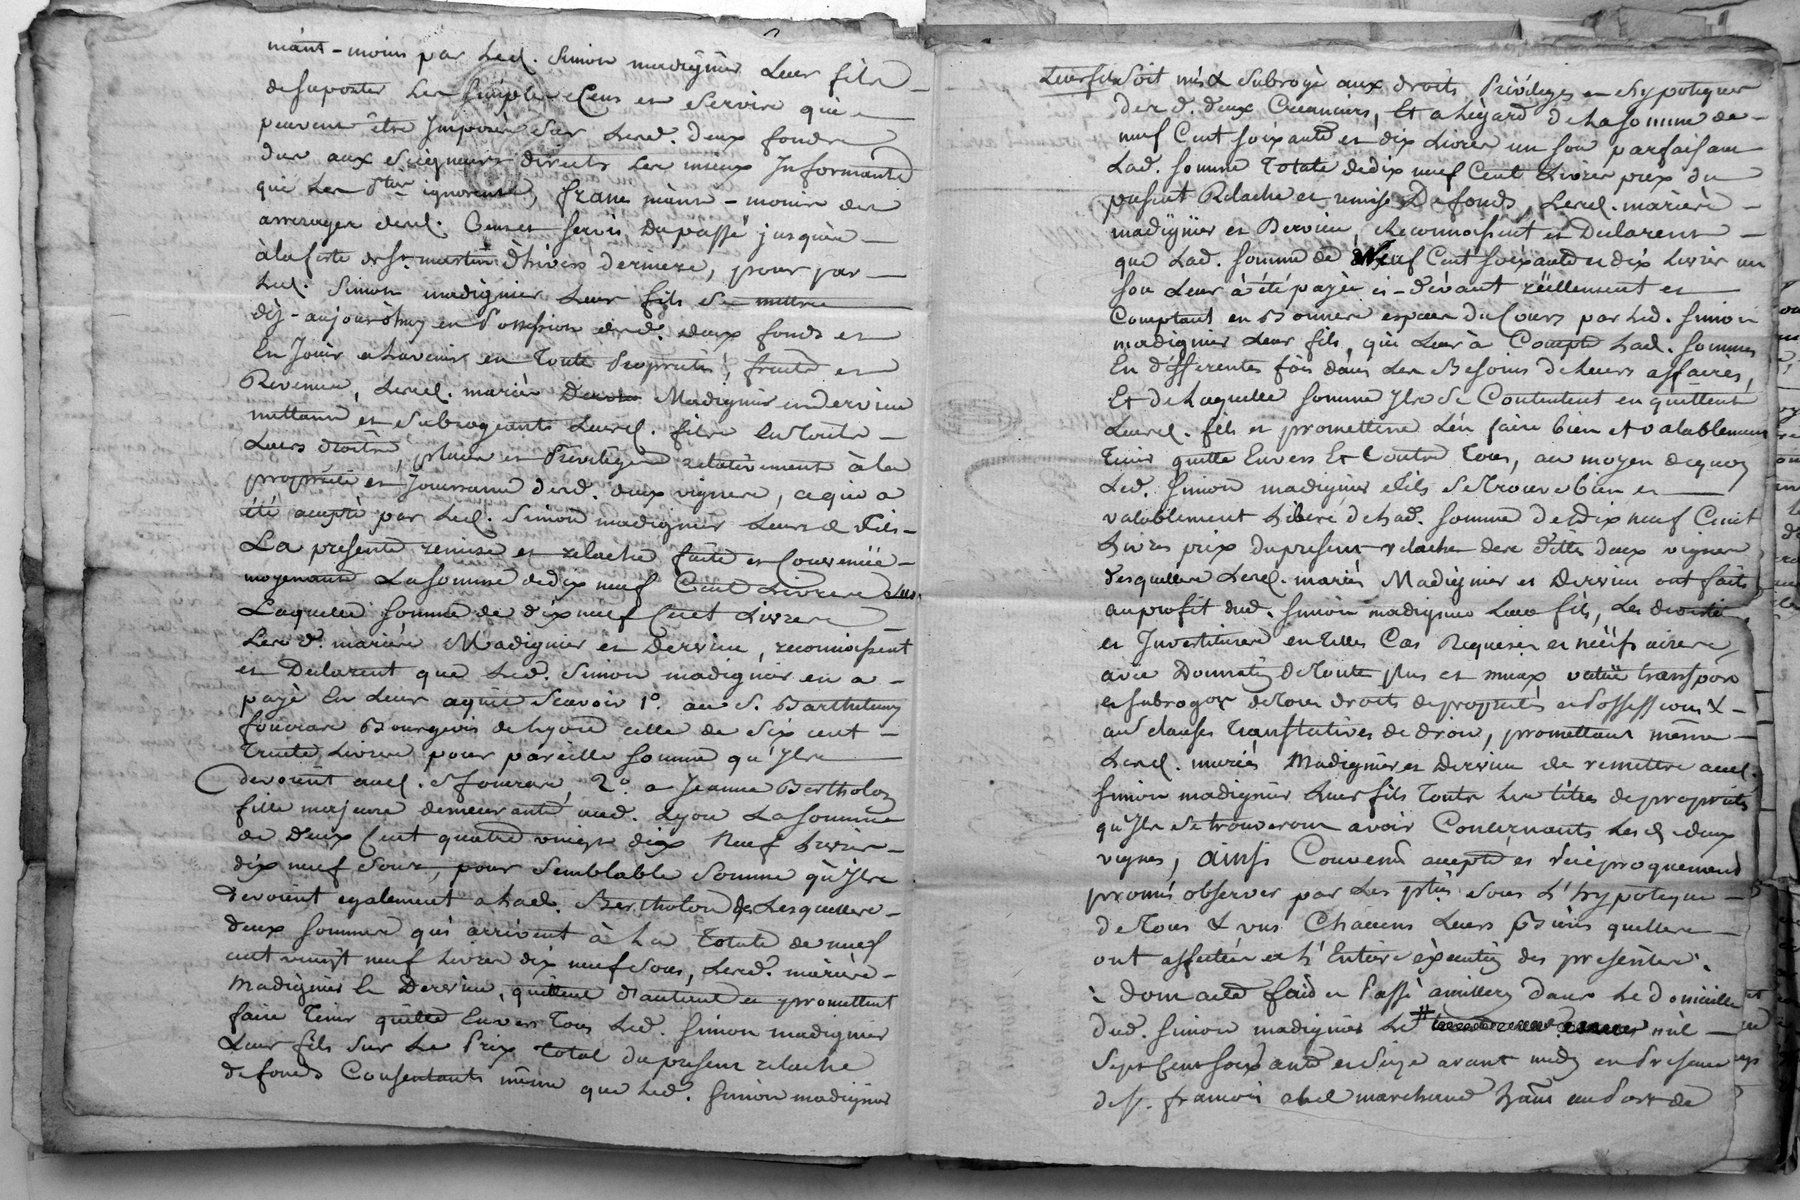 néant-moins par led. Simon madignier Leur fils
de suporter Les simples Cens et Servis qui
peuvent être Imposés sur Lesd. deux fonds
dus aux Seigneurs directs Les mieux Informants
que Les Pties ignorent, francs néant-moins des
arrerages desd. Cens et servis du passé jusques
à la feste de St. martin d'hivers derniere, pour par
led. Simon madignier Leur fils se mettre
dèz-aujourd'huy en Possession desd. deux fonds et
En Jouir a Lavenir en Toute Propriété, fruits et
Revenus, Lesd. mariés Madignier et Dervieu
mettant et Subrogeants Leurd. fils En Touts
Leurs droits, places et Privilèges relativement à la
propriété et Jouissance desd. deux vignes, ce qui a
été accepté par Led. Simon madignier Leurd. Fils
La presente remise et relache faite et Convenüe
moyenant La somme de dix neuf Cent Livres
Laquelle somme de dix neuf Cent Livres
Lesd. mariés Madignier et Dervieu, reconnoissent
et Declarent que Led. Simon madignier en a
payé En Leur aquit Scavoir 1°. au S. Barthelemy
fourar Bourgeois de Lyon celle de Six cent
Trente Livres pour pareille somme qu'Ils
devoient aud. S fourar, 2°. a Jeanne Bertholon
fille majeure demeurante aud. Lyon La somme
de deux Cent quatre vingt dix Neuf Livres
dix neuf sous, pour Semblable Somme qu'Ils
devoient egalement a Lad. Bertholon Lesquelles
deux sommes qui arrivent à La Totale de neuf
cent vingt neuf Livres dix neuf sous, Lesd. mariés
Madignier et Dervieu, quittent d'autant et promettent
faire Tenir quitte Envers Tous Led. Simon madignier
Leur fils sur Le Prix Total du present relache
de fonds Consentants même que Led. Simon madignier
Leur fils Soit mis & Subrogé aux droits Priviléges et hypoteques
desd. deux Creanciers, Et a Légard de La somme de
neuf Cent soixante et dix Livres un sou parfaisant
Lad. somme Totale de dix neuf Cent Livres prix du
present Relache et remise De fonds, Lesd. mariés
madignier et Dervieu, Reconnoissent et Declarent
que Lad. somme de Neuf Cent soixante et dix Livres un
sou Leur à été payée ci-devant réellement et
Comptant en Bonnes especes du Cours par Led. Simon
madignier Leur fils, qui Leur à Compté Lad. somme
En differentes fois dans Les Besoins de Leurs affaires,
Et de Laquelle somme Ils Se Contentent en quittent
Leurd. fils et promettent L'en faire bien et valablement
Tenir quitte Envers Et Contre Tous, au moyen de quoy
Led. Simon madignier fils se Trouve bien et
valablement Liberé de Lad. somme de dix neuf Cent
Livres prix du present relache des dittes deux vignes
desquelles Lesd. mariés Madignier et Dervieu ont faits
au profit dud. Simon madignier Leur fils, Les
et Investitures en telles Cas Requises et nécéssaires
avec Donnation de Toute plus et mieux valüe transport
et subrogon de Tous droits de propriétés et Possessions &
au clauses Translatives de droit, promettant même
Lesd. mariés Madignier et Dervieu de remettre aud.
Simon madignier Leur fils Touts Les titres de proprietés
qu'Ils se trouveront avoir Concernants Lesd. deux
vignes, ainsi Convenu accepté et réciproquement
promis observer par Les pties sous L'hypoteque
de Tous & uns Chacuns Leurs Biens quelles
ont affectées a L'Entiere execution des presentes.
Dont acte fait et Passé dans Le domicille
dud. Simon madignier Le # mil
Sept Cent soixante et Seize avant midy en Presence
de s. francois abel marchand